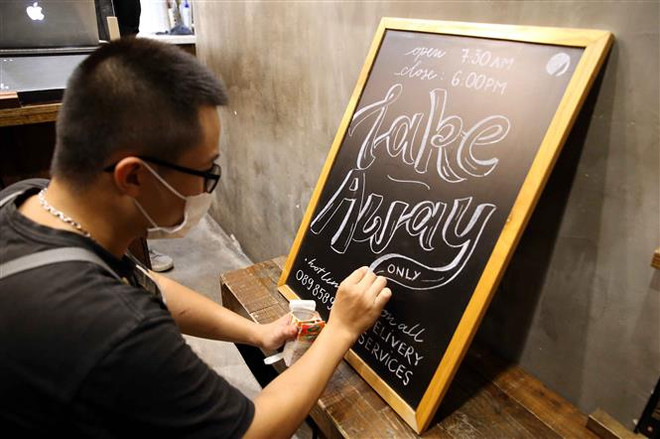 open 7.30AM
close: 6:00PM
Take
Away
ONLY
hot line
089 8585
on all
DELIVERY
SERVICES